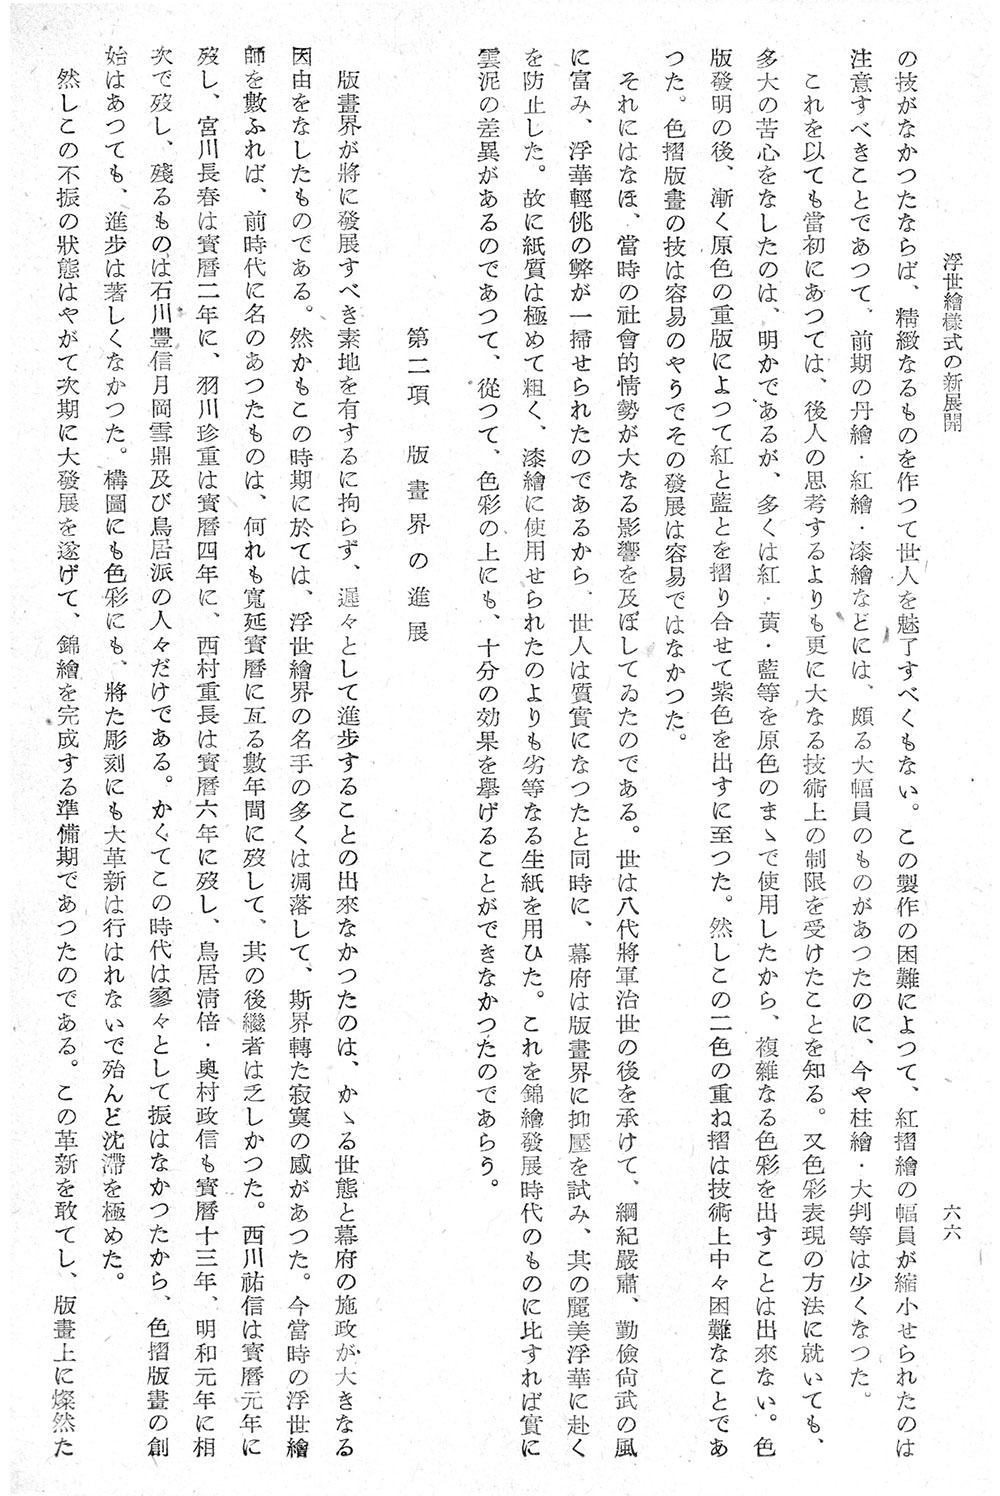 浮世繪樣式の新展開
六六
の技がなかつたならば、精緻なるものを作つて世人を魅了すべくもない。この製作の困難によつて、紅摺繪の幅員が縮小せられたのは
注意すべきことであつて、前期の丹繪・紅繪・漆繪などには、頗る大幅員のものがあつたのに、今や柱繪・大判等は少くなつた。
これを以ても當初にあつては、後人の思考するよりも更に大なる技術上の制限を受けたことを知る。又色彩表現の方法に就いても、
多大の苦心をなしたのは、明かであるが、多くは紅・黄・藍等を原色のまゝで使用したから、複雜なる色彩を出すことは出來ない。色
版發明の後、漸く原色の重版によつて紅と藍とを摺り合せて紫色を出すに至つた。然しこの二色の重ね摺は技術上中々困難なことであ
つた。色摺版畫の技は容易のやうでその發展は容易ではなかつた。
それにはなほ、當時の社會的情勢が大なる影響を及ぼしてゐたのである。世は八代將軍治世の後を承けて、綱紀嚴肅、勤儉尙武の風
に富み、浮華輕佻の弊が一掃せられたのであるから、世人は質實になつたと同時に、幕府は版畫界に抑壓を試み、其の麗美浮華に赴く
を防止した。故に紙質は極めて粗く、漆繪に使用せられたのよりも劣等なる生紙を用ひた。これを錦繪發展時代のものに比すれば實に
雲泥の差異があるのであつて、從つて、色彩の上にも、十分の効果を擧げることができなかつたのであらう。
第二項　版畫界の進展
版畫界が將に發展すべき素地を有するに拘らず、遲々として進步することの出來なかつたのは、かゝる世態と幕府の施政が大きなる
因由をなしたものである。然かもこの時期に於ては、浮世繪界の名手の多くは凋落して、斯界轉た寂寞の感があつた。今當時の浮世繪
師を數ふれば、前時代に名のあつたものは、何れも寬延寶曆に亙る數年間に歿して、其の後繼者は乏しかつた。西川祐信は寶曆元年に
歿し、宮川長春は寶曆二年に、羽川珍重は寶曆四年に、西村重長は寶曆六年に歿し、鳥居淸倍・奥村政信も寶曆十三年、明和元年に相
次で歿し、殘るものは石川豐信月岡雪鼎及び鳥居派の人々だけである。かくてこの時代は寥々として振はなかつたから、色摺版畫の創
始はあつても、進步は著しくなかつた。構圖にも色彩にも、將た彫刻にも大革新は行はれないで殆んど沈滯を極めた。
然しこの不振の狀態はやがて次期に大發展を遂げて、錦繪を完成する準備期であつたのである。この革新を敢てし、版畫上に燦然た